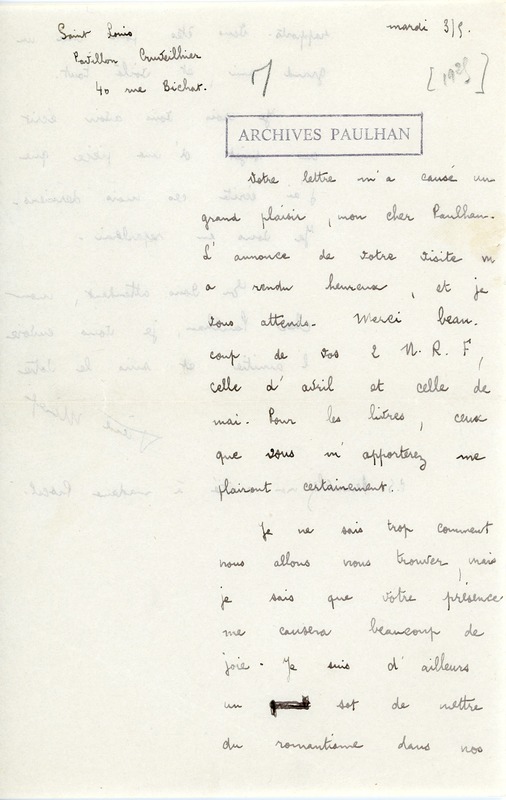 Saint Louis
mardi 3/5.
Pavillon Cruveilhier
40 rue Bichat.
ARCHIVES PAULHAN
Votre lettre m'a causé un
grand plaisir, mon cher Paulhan.
L'annonce de votre visite m
a rendu heureux, et je
vous attends. Merci beau-
coup de vos 2 N.R.F,
celle d'avril et celle de
mai. Pour les livres, ceux
que vous m'apporterez me
plairont certainement.
Je ne sais trop comment
nous allons nous trouver, mais
je sais que votre présence
me causera beaucoup de
joie. Je suis d'ailleurs
un sot de mettre
du romantisme dans nos